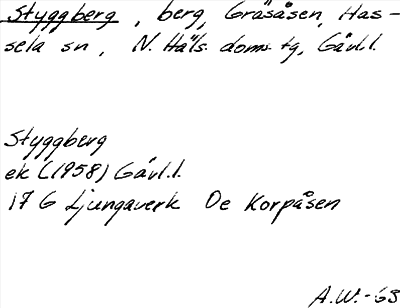 Styggberg, berg, Gräsåsen, Has-
sela sn, N. Häls. doms. tg, Gävl.l.
Styggberg
ek (1958) Gävl.l.
17 G Ljungaverk De Korpåsen
A.W.-63